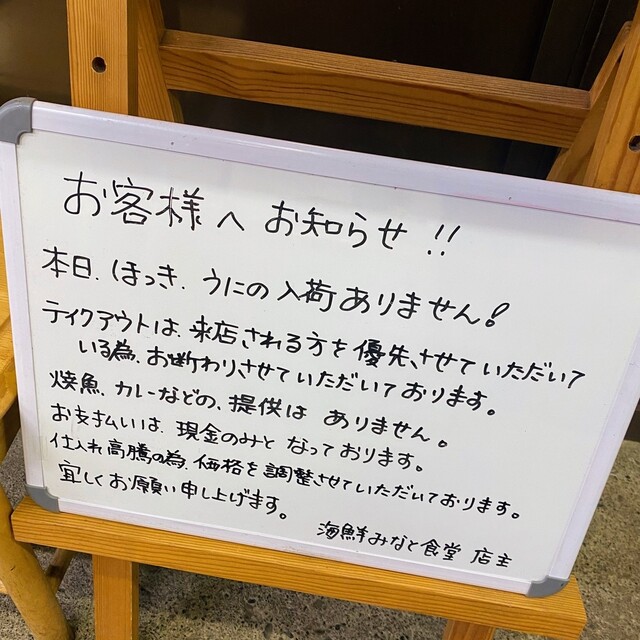 お客様へ お知らせ!!
本日、ほっき、うにの入荷ありません!
テイクアウトは、来店される方を優先させていただいて
いる為、お断わりさせていただいております。
焼魚、カレーなどの、提供は ありません。
お支払いは、現金のみと なっております。
仕入れ高騰の為、価格を調整させていただいております。
宜しくお願い申し上げます。
海鮮みなと食堂 店主